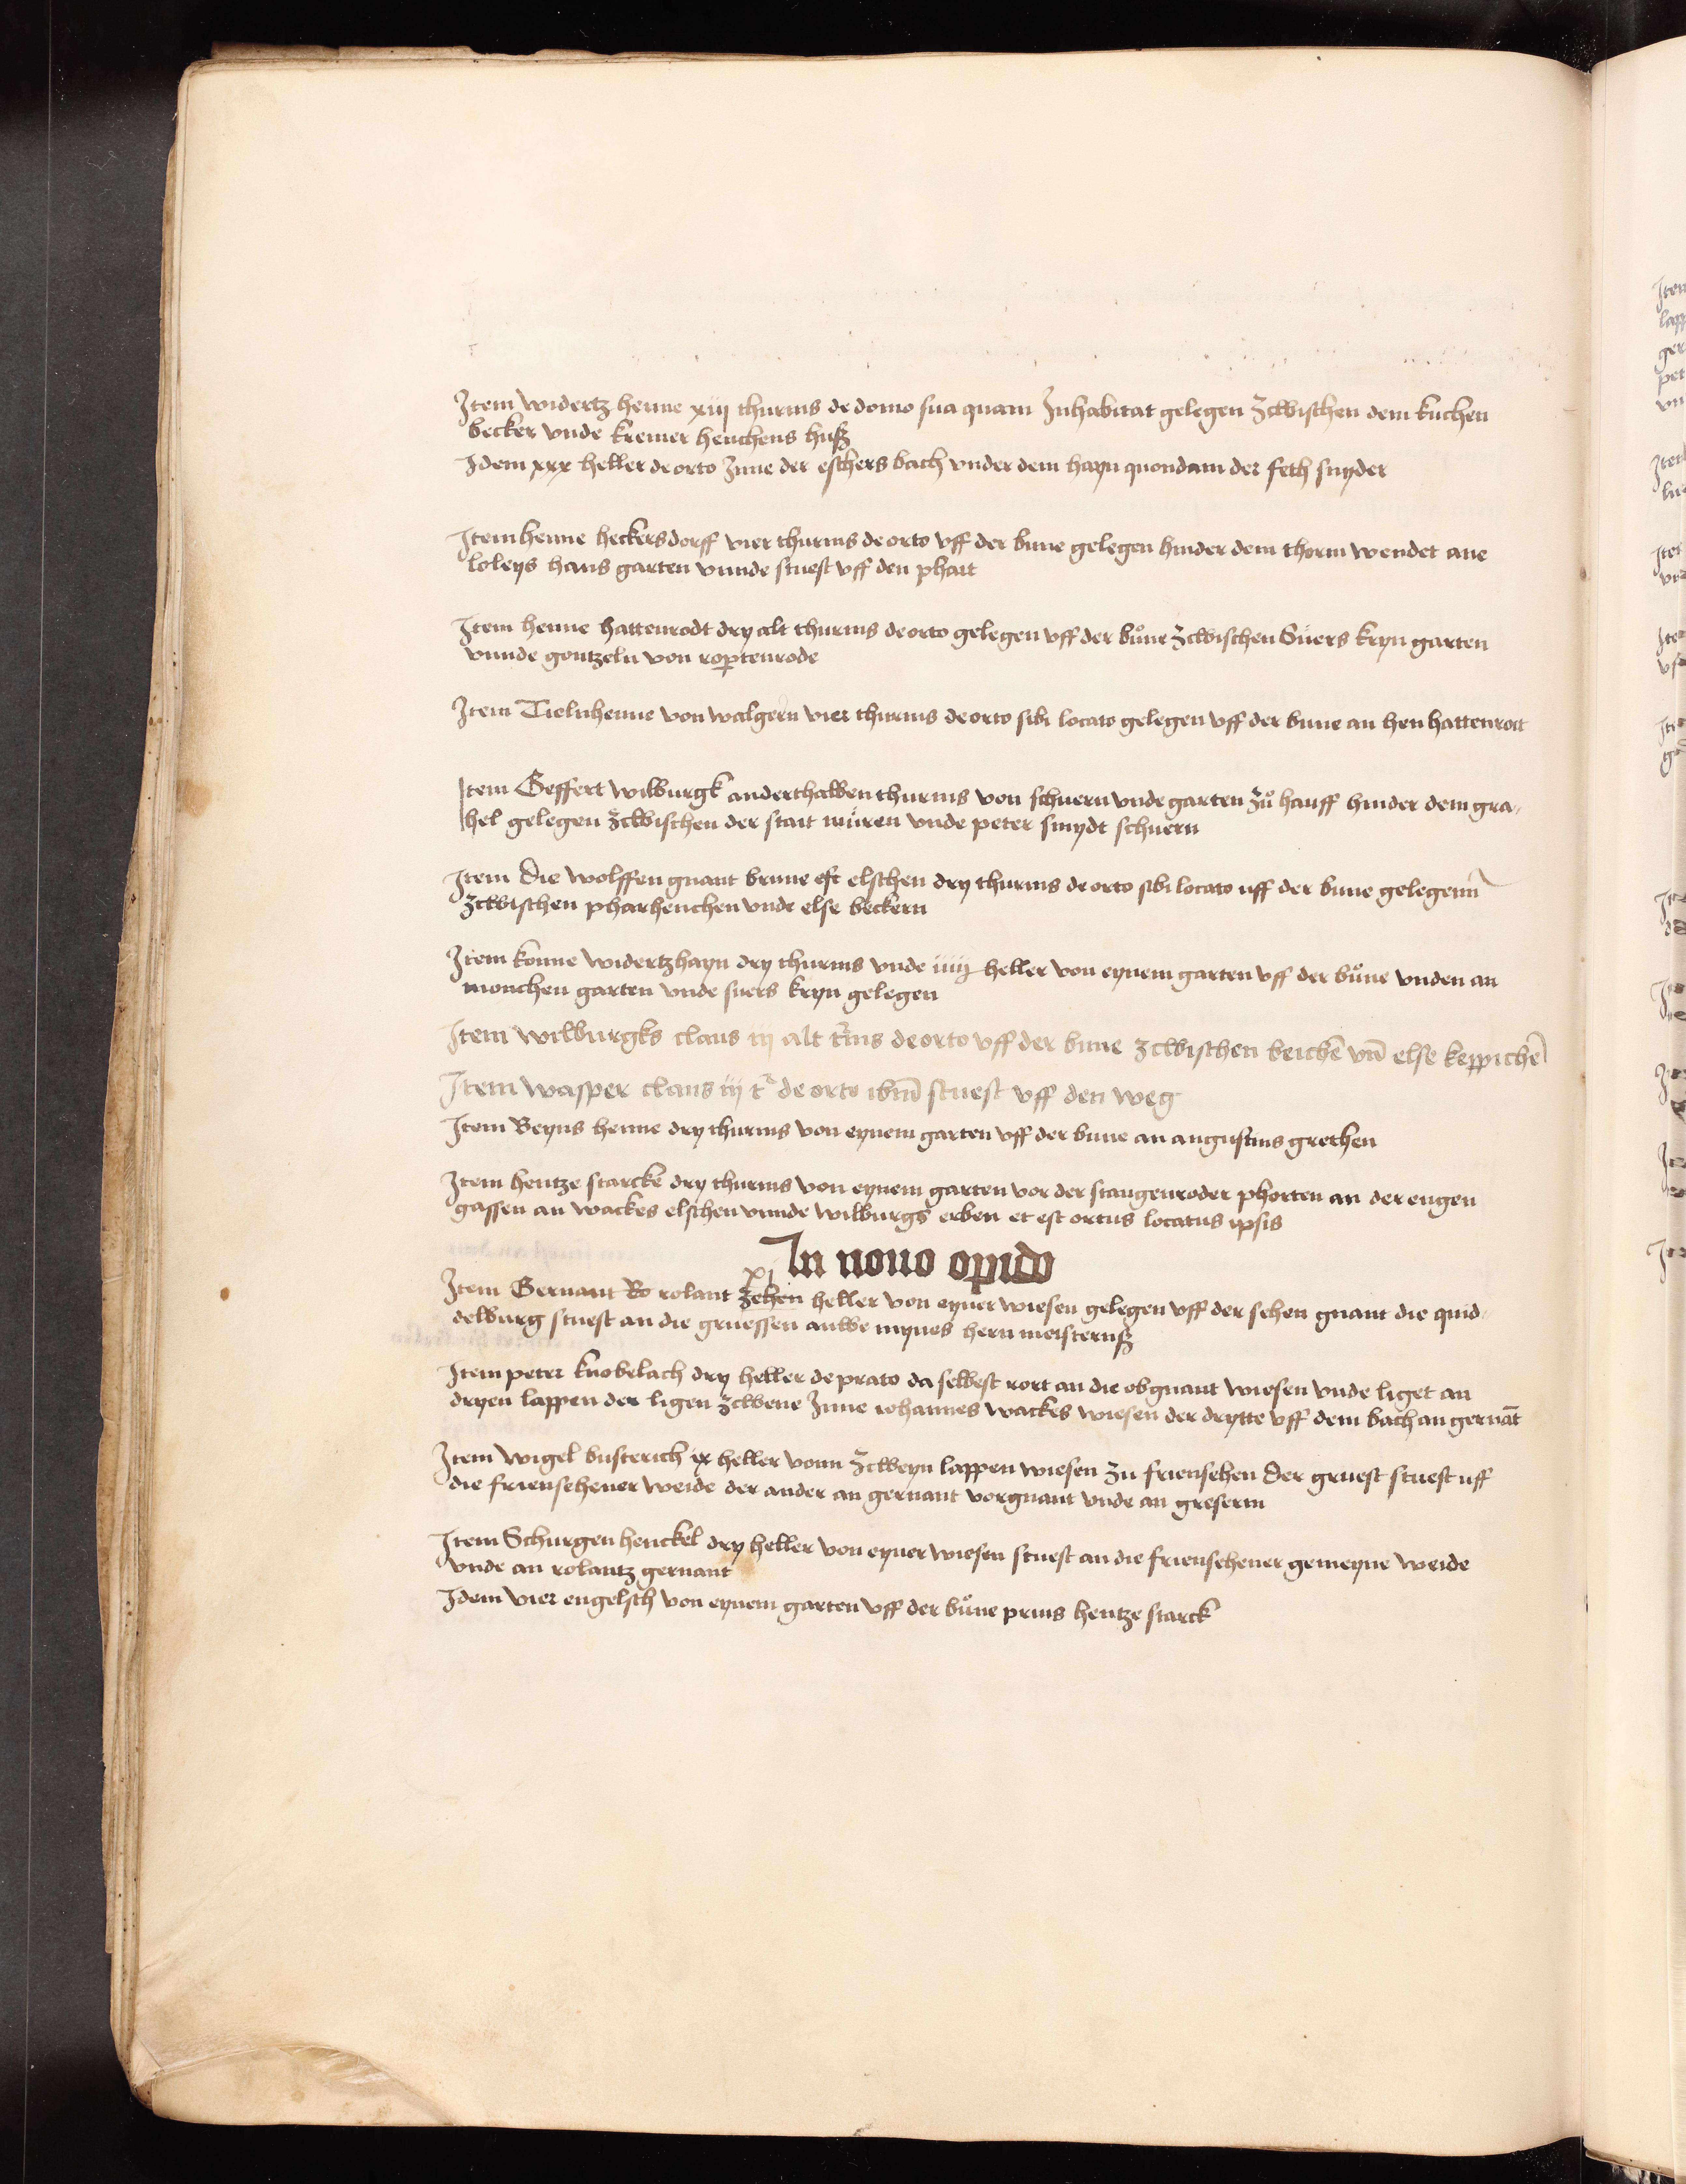 Item widertz henne xiij thurnis de domo sua quam Inhabitat gelegen Zcwischen dem kuchen
becker vnde kremer henchens huß
Idem xxx heller de orto Inne der eschers bach vnder dem hayn quondam der feth snyder
Item henne heckersdorff vier thurnis de orto vff der bune gelegen hinder dem thorm wendet ane
loleys hans garten vnnde stuest vff den phatt
Item henne hattenrodt dry alt thurnis de orto gelegen vff der bůne Zcwischen Suers kryn garten
vnnde gontzeln von roptenrode
Item Tielnhenne von walgern vier thurnis de orto sibi locato gelegen vff der bune an hen hattenrott
Item Geffert wilburgk anderthalben thurnis von schuern vnde garten Zů hauff hinder dem gra-
hel gelegen Zcwischen der statt muren vnde peter smydt schuern
Item die wolffen gnant brune est elschen dry thurnis de orto sibi locato uff der bune gelegenn
Zcwischen pharhenchen vnde else beckern
Item konne widertzhayn dry thurnis vnde iiij heller von eynem garten vff der bůne vnden an
monchen garten vnde suers kryn gelegen
Item wilburgks claus iij alt t̃nis de orto vff der bune zcwischen beichē vñ else keppichē
Item wasper claus iij t̃ de orto ibm̄ stuest vff den weg
Item Beyns henne dry thurnis von eynem garten vff der bune an angustins grethen
Item hentze starcke dry thurnis von eynem garten vor der stangenroder phorten an der engen
gassen an wackes elschen vnnde wilburgs erben et est ortus locatus ipsis
In nouo opido
xj
Item Gernant Ro rolant zehen heller von eyner wiesen gelegen vff der sehen gnant die quid-
delburg stuest an die gruessen auwe mynes hern meisternß
Item peter knobelach dry heller de prato da selbest rort an die obgnant wiesen vnde liget an
dryen lappen der ligen zcwene Inne iohannes wackes wiesen der drytte vff dem bach an gernāt
Item wigel busterich ix heller vonn Zcweyn lappen wiesen zu friensehen der gruest stuest uff
die friensehener weide der ander an gernant vorgnant vnde an greserin
Item Schurgen henckel dry heller von eyner wiesen stuest an die friensehener gemeyne weide
vnde an rolantz gernant
Idem vier engelsch von eynem garten vff der bůne prius hentze starck